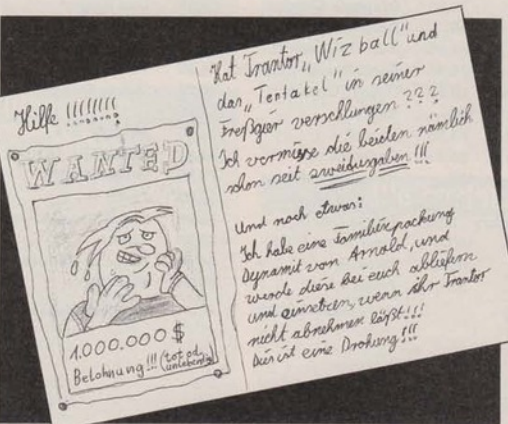 Hilfe !!!!!!!!
WANTED
1.000.000 $
Belohnung!!! (tot od.
unlebendig)
Hat Trantor „Wizball" und
das „Tentakel" in seiner
Freßgier verschlungen ???
Ich vermisse die beiden nämlich
schon seit zwei Ausgaben !!!
Und noch etwas:
Ich habe eine Familienpackung
Dynamit von Arnold, und
werde diese bei euch abliefern
und einsetzen, wenn ihr Trantor
nicht abnehmen läßt!!!
Dies ist eine Drohung!!!